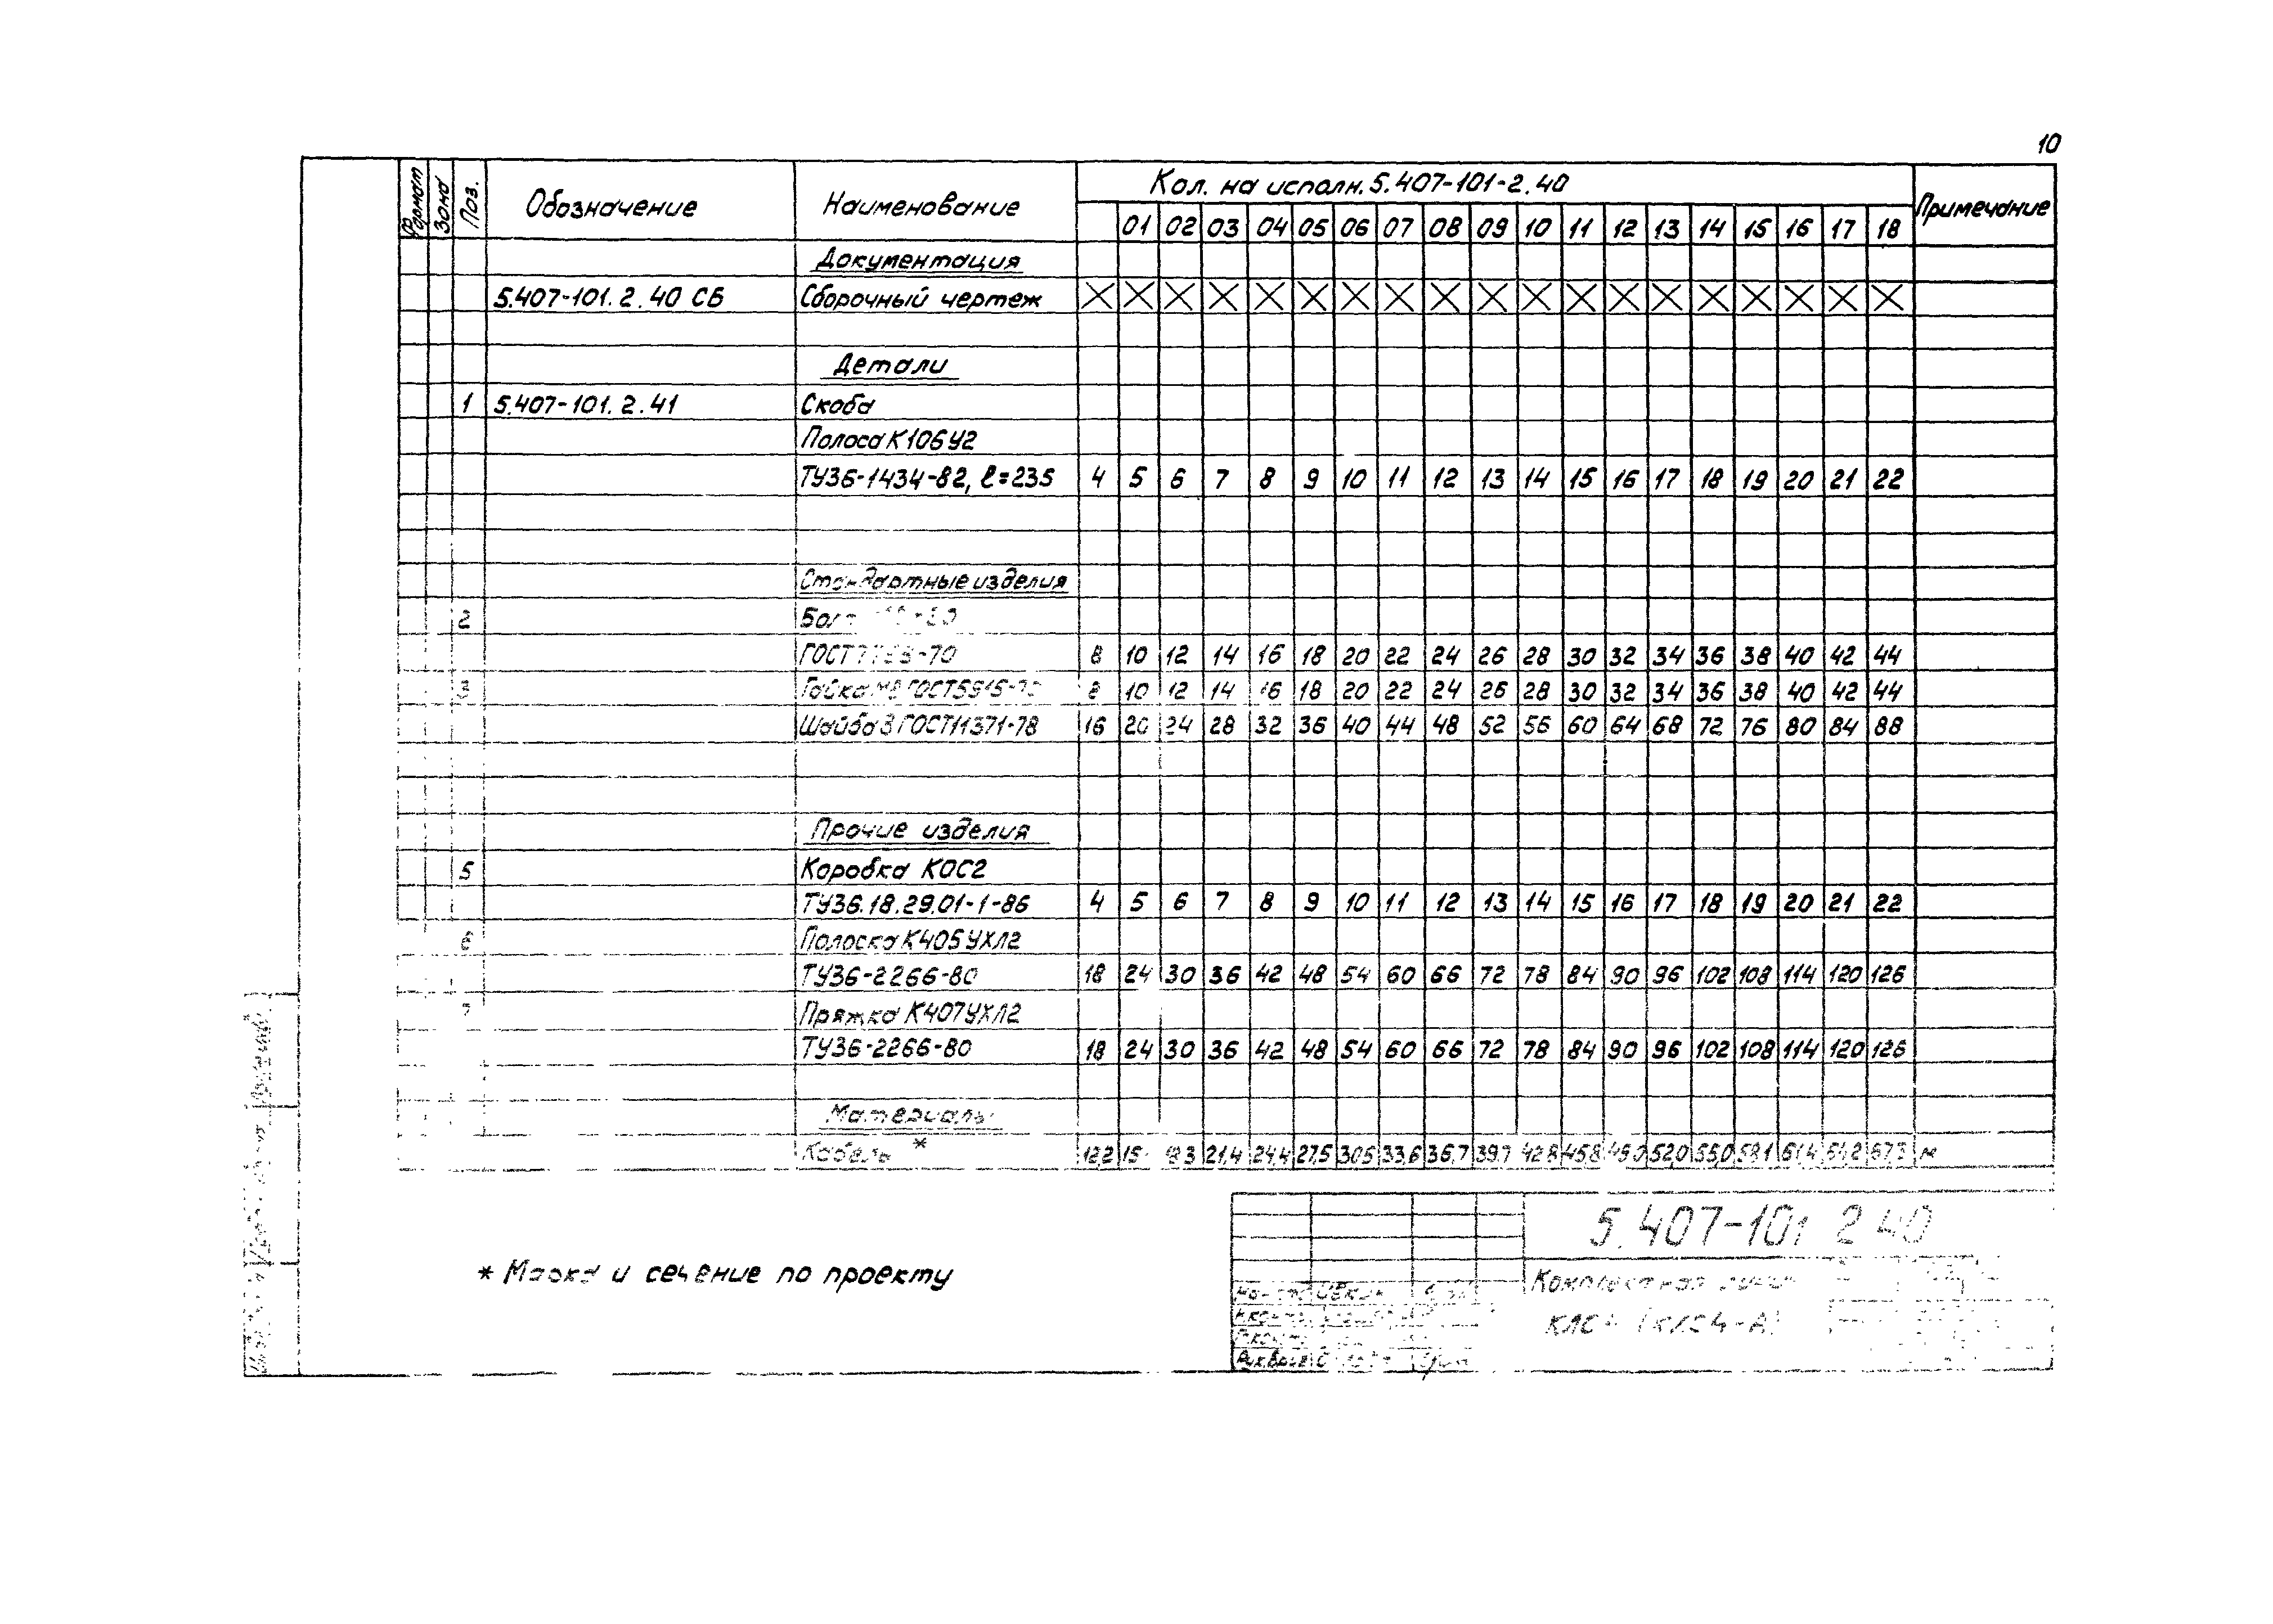 10
Формат Зона Поз. Обозначение Наименование Кол. на исполн. 5.407-101-2.40 Примечание
01 02 03 04 05 06 07 08 09 10 11 12 13 14 15 16 17 18
Документация
5.407-101.2.40 СБ Сборочный чертеж
Детали
1 5.407-101.2.41 Скоба
Полоса К106У2
ТУ36-1434-82, ℓ=235 4 5 6 7 8 9 10 11 12 13 14 15 16 17 18 19 20 21 22
Стандартные изделия
2 Болт
ГОСТ 8 10 12 14 16 18 20 22 24 26 28 30 32 34 36 38 40 42 44
3 Гайка М8 ГОСТ5915-70 8 10 12 14 16 18 20 22 24 26 28 30 32 34 36 38 40 42 44
Шайба 8 ГОСТ11371-78 16 20 24 28 32 36 40 44 48 52 56 60 64 68 72 76 80 84 88
Прочие изделия
5 Коробка КОС2
ТУ36.18.29.01-1-86 4 5 6 7 8 9 10 11 12 13 14 15 16 17 18 19 20 21 22
6 Полоска К405УХЛ2
ТУ36-2266-80 18 24 30 36 42 48 54 60 66 72 78 84 90 96 102 108 114 120 126
7 Пряжка К407УХЛ2
ТУ36-2266-80 18 24 30 36 42 48 54 60 66 72 78 84 90 96 102 108 114 120 126
Материалы
Кабель * 12,2 21,4 24,4 27,5 30,5 33,6 36,7 39,7 42,8 45,8 49,0 52,0 55,0 58,1 61,4 64,2 м
* Марка и сечение по проекту
5.407-101 2 40
Комплектная линия